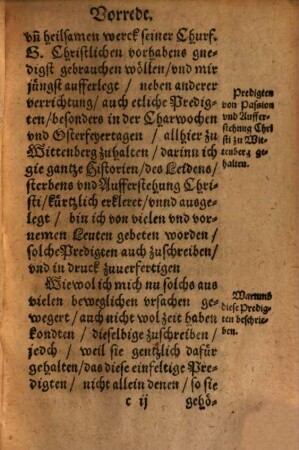 Vorrede.
vñ heilsamen werck seiner Churf.
G. Christlichen vorhabens gne-
digst gebrauchen wöllen / vnd mir
jüngst aufferlegt / neben anderer
verrichtung / auch etliche Predig-
ten / besonders in der Charwochen
vnd Osterfeyertagen / allhier zu
Wittenberg zuhalten / darinn ich
die gantze Historien / des Leidens /
sterbens vnd Aufferstehung Chri-
sti / kürtzlich erkleret / vnnd ausge-
legt / bin ich von vielen vnd vor-
nemen Leuten gebeten worden /
solche Predigten auch zuschreiben /
vnd in druck zuuerfertigen
Predigten
von Passion
vnd Auffer-
stehung Chri
sti zu Wit-
tenberg ge-
halten.
Wiewol ich mich nu solchs aus
vielen beweglichen vrsachen ge-
wegert / auch nicht wol zeit haben
kondten / dieselbige zuschreiben /
jedoch / weil sie gentzlich dafür
gehalten / das diese einfeltige Pre-
digten / nicht allein denen / so sie
Warumb
diese Predig-
ten beschrie-
ben.
c ij gehö-